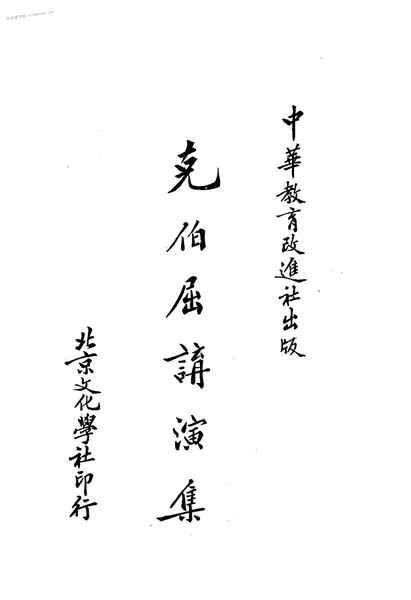 中華教育改進社出版
克伯屈講演集
北京文化學社印行